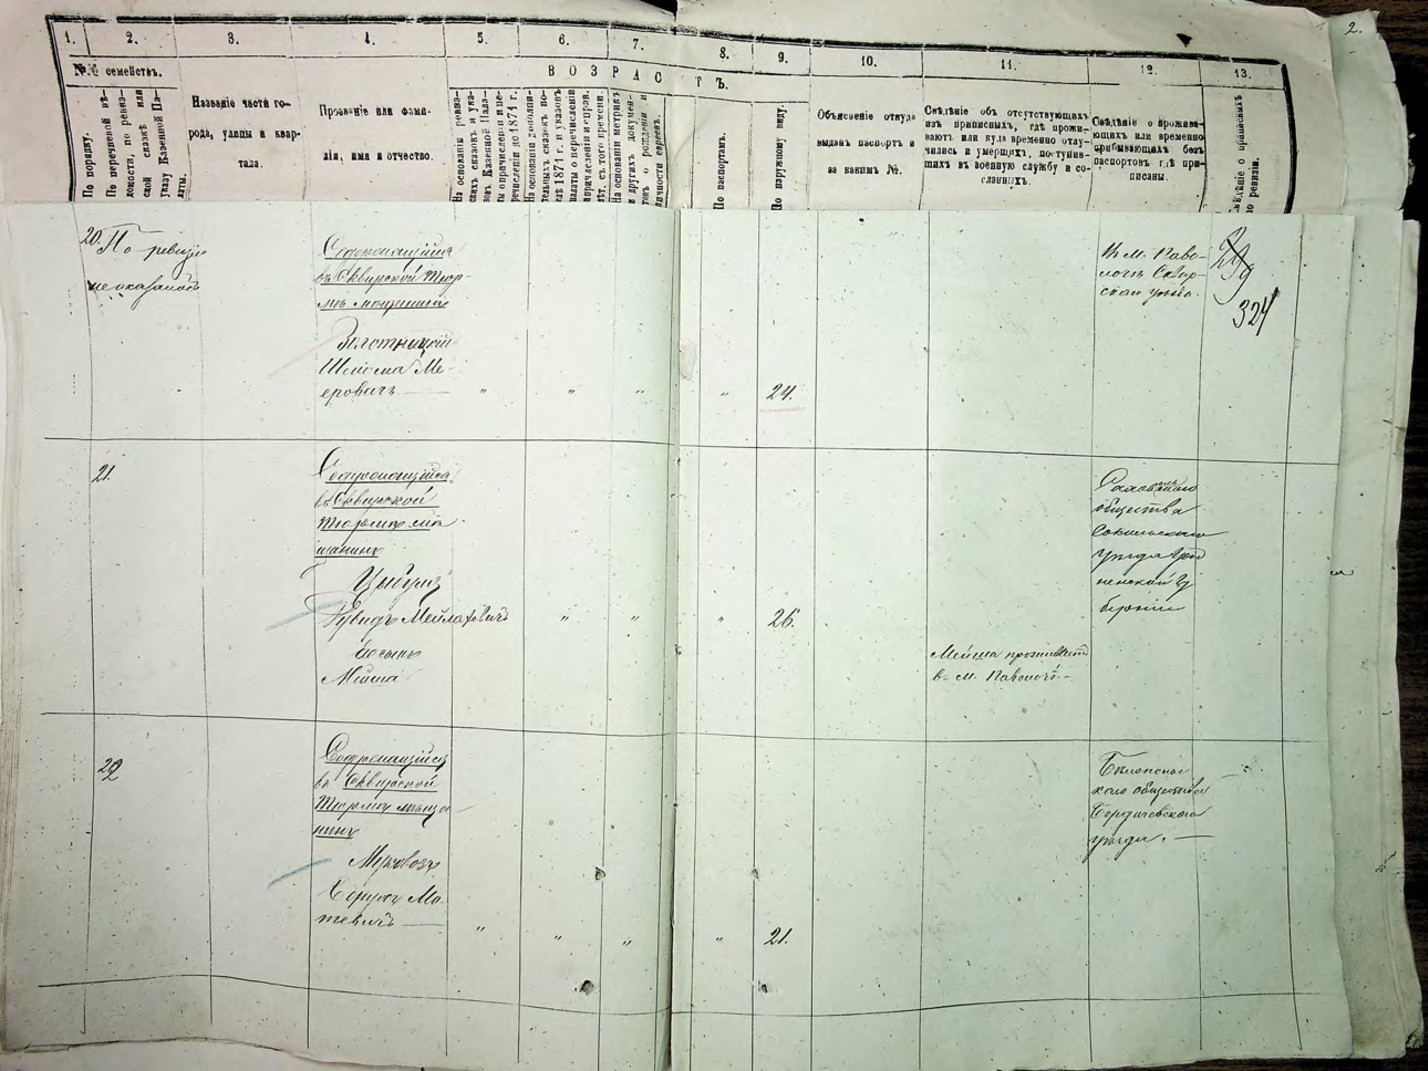 2.
1. 2. 3. 4. 5. 6. 7. 8. 9. 10. 11. 12. 13.
№№ семействъ.
По порядку.
По перечневой вѣ-
домости, по ревиз-
ской сказкѣ или
указу Казенной Па-
латы.
Названіе части го-
рода, улицы и квар-
тала.
Прозваніе или фами-
лія, имя и отчество.
ВОЗРАСТЪ.
На основаніи ревиз-
скихъ сказокъ и ука-
зовъ Казенной Пала-
ты о причисленіи и пе-
речисленіи до 1871 г.
На основаніи дополни-
тельныхъ сказокъ по-
слѣ 1871 г. и указовъ
палаты о перечисленіи
и причисленіи и справ.
лѣт. съ того времени.
На основаніи метрикъ
и другихъ докумен-
товъ о рожденіи и
личности евреевъ.
По паспортамъ.
По наружному виду.
Объясненіе откуда
выданъ паспортъ и
за какимъ №.
Свѣдѣніе объ отсутствующихъ
изъ приписныхъ, гдѣ прожи-
ваютъ или куда временно отлу-
чились и умершихъ, поступив-
шихъ въ военную службу и со-
сланныхъ.
Свѣдѣніе о прожива-
ющихъ или временно
прибывающихъ безъ
паспортовъ гдѣ при-
писаны.
Свѣдѣніе о приписныхъ
по ревизіи.
20. По ревизіи
не оказалось
Содержащійся
въ Сквирской Тюр-
мѣ мѣщанинъ
Золотницкій
Шлиома Ме-
еровичъ — " " " " 24.
Въ м. Паво-
лочѣ Сквир-
скаго уѣзда.
324
21.
Содержащійся
въ Сквирской
Тюрмѣ мѣ-
щанинъ
Дувидъ Мейлаховичъ " " " 26.
Его сынъ
Мейша
Мейша проживаетъ
в м. Паволочѣ —
общества
Сокольскаго
уѣзда Грод
ненской Гу
берніи
22
Содержащійся
въ Сквирской
Тюрмѣ мѣща-
нинъ
Берухъ Мо-
тевичъ — " " " " 21.
скаго общества
Бердичевскаго
уѣзда. —